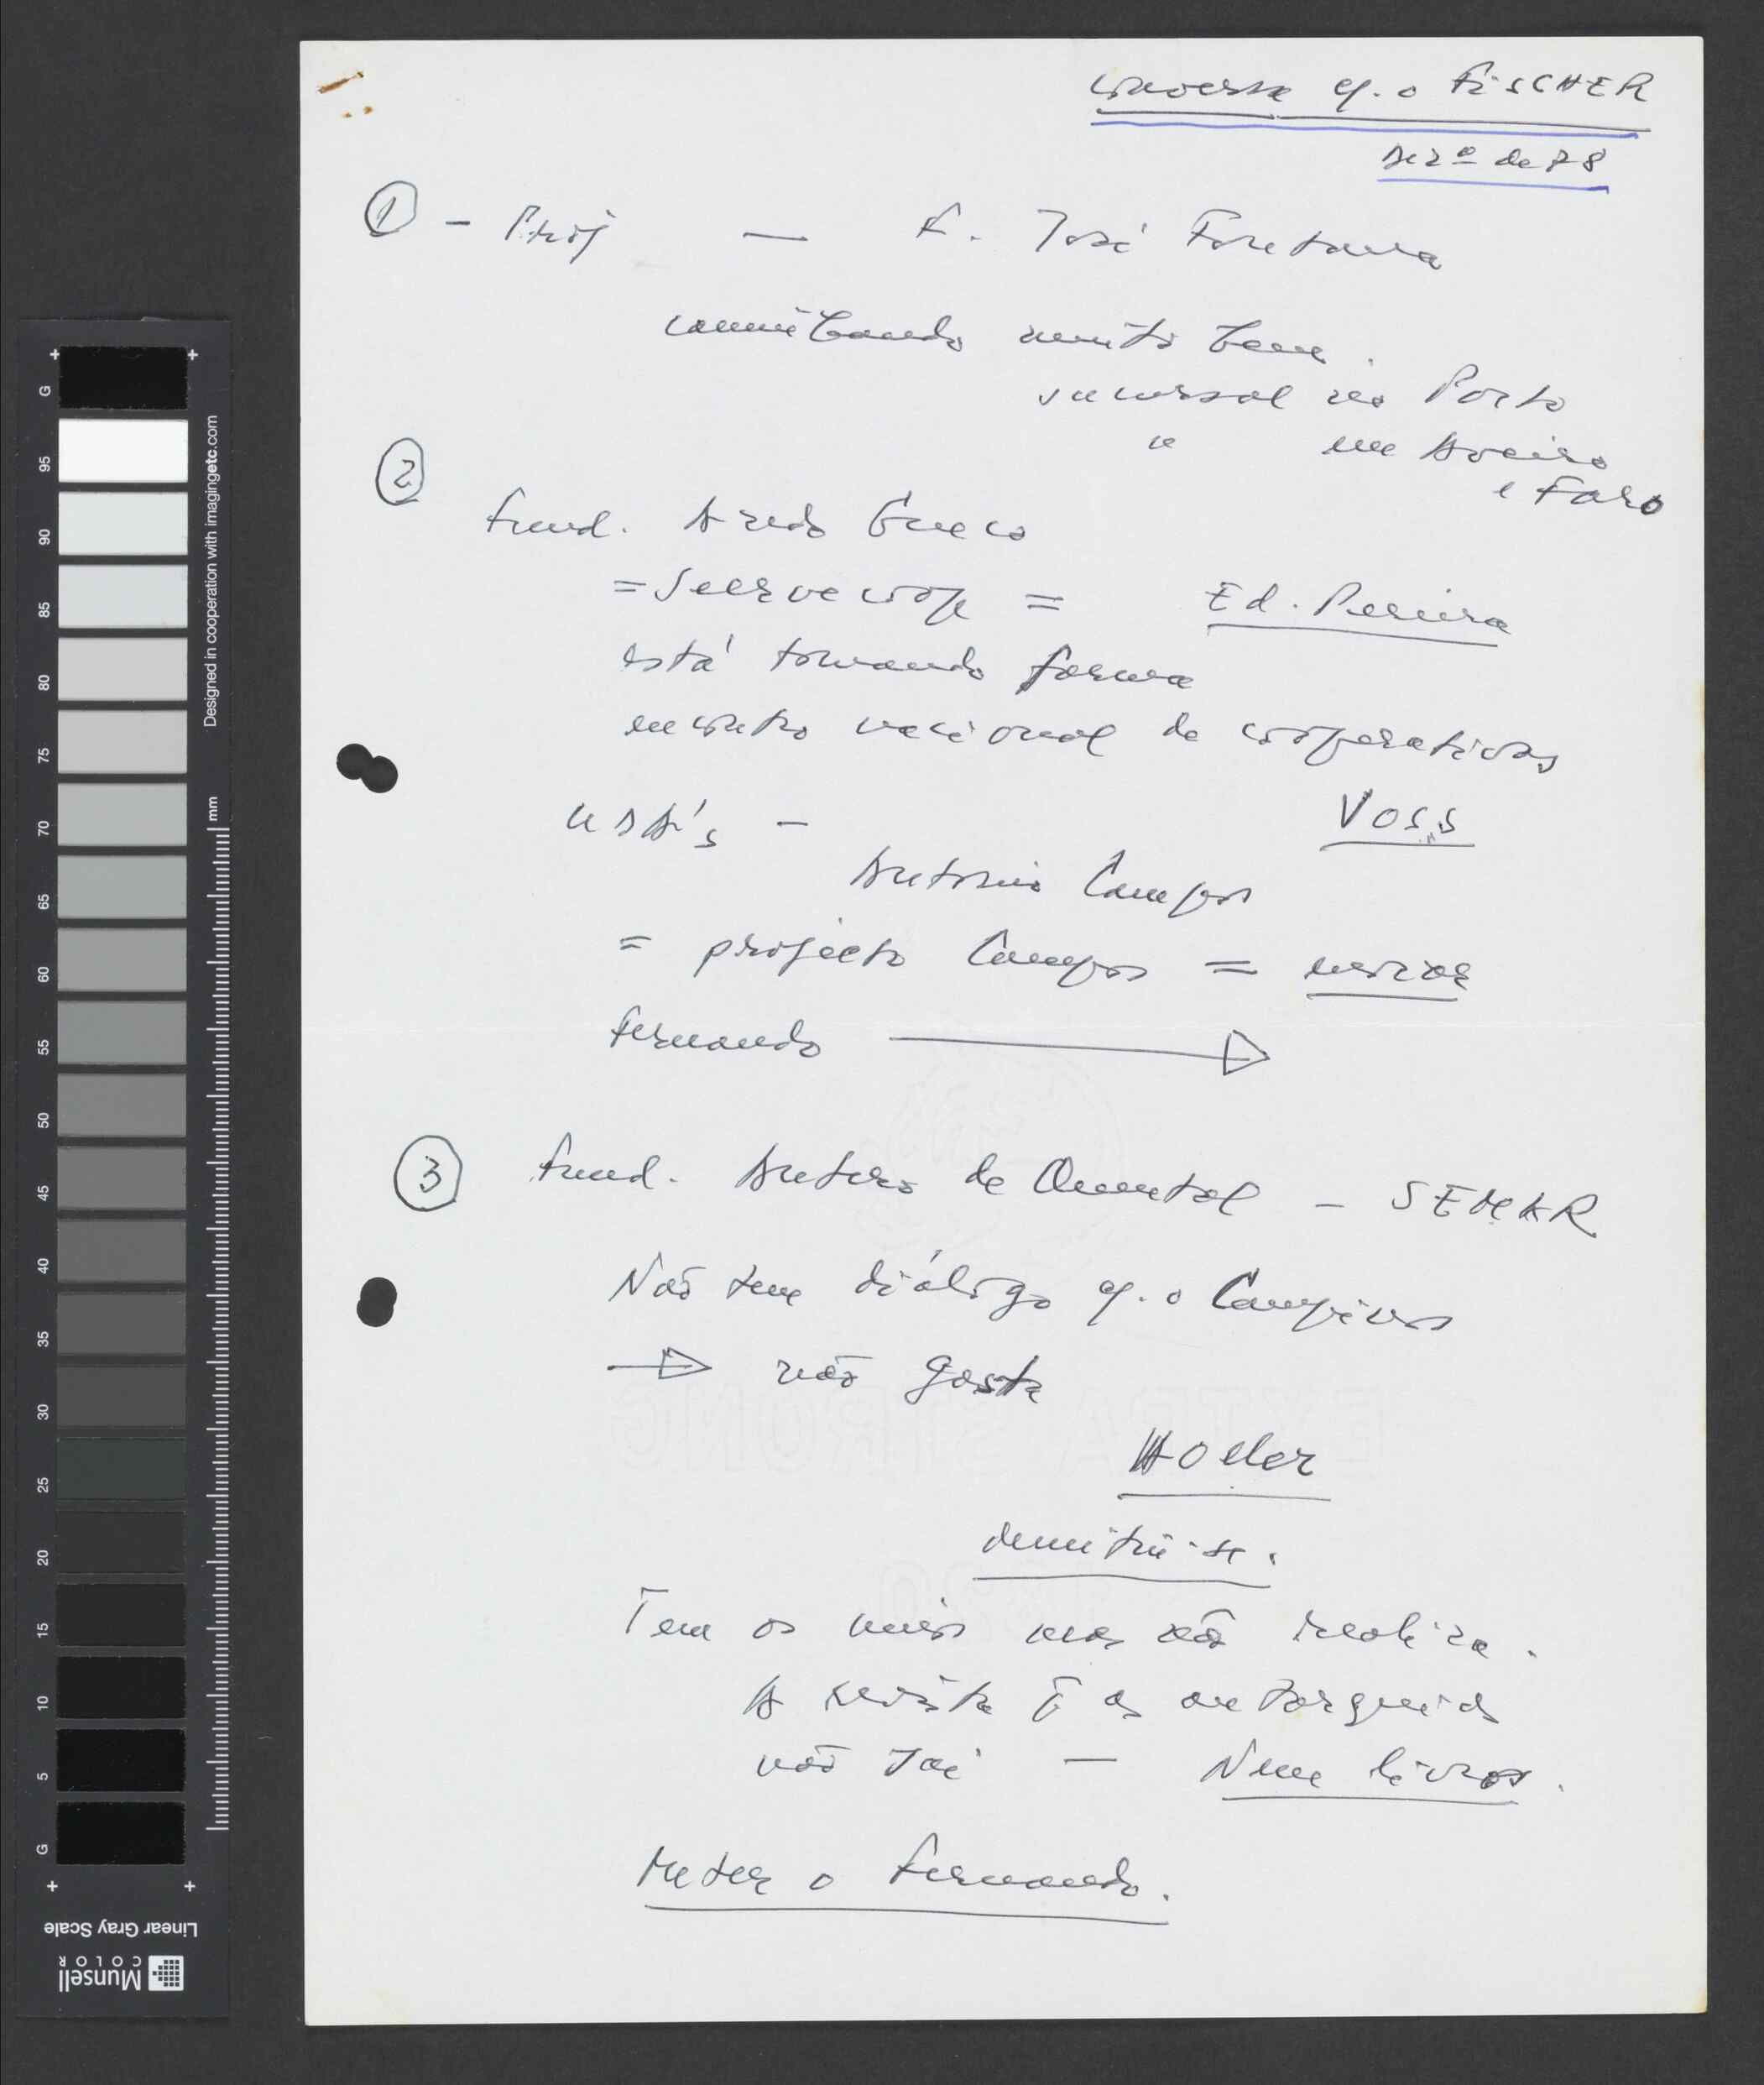 conversa c/. o FISCHER
Dezº de 78
① - Proj — F. José Fontana
caminhando muito bem.
sucursal no Porto
" em Aveiro
e Faro
②
Fund. Azedo Gneco
= Servecoop = Ed. Pereira
está tomando forma
encontro nacional de cooperativas
UDA's - Voss
Antonio Campos
= projecto Campos =
Fernando →
③ Fund. Antero de Quental - SEMAR
Não tem diálogo c/. o Campinos
→ não gosta
Holler
demitiu-se.
Tem os meios mas não realiza.
A revista p/ as autarquias
não sai — Nem livros.
Meter o Fernando.
G 95 90 85 80 75 70 65 60 55 50 45 40 35 30 25 20 15 10 5 G
mm
Designed in cooperation with imagingetc.com
Linear Gray Scale
Munsell
COLOR